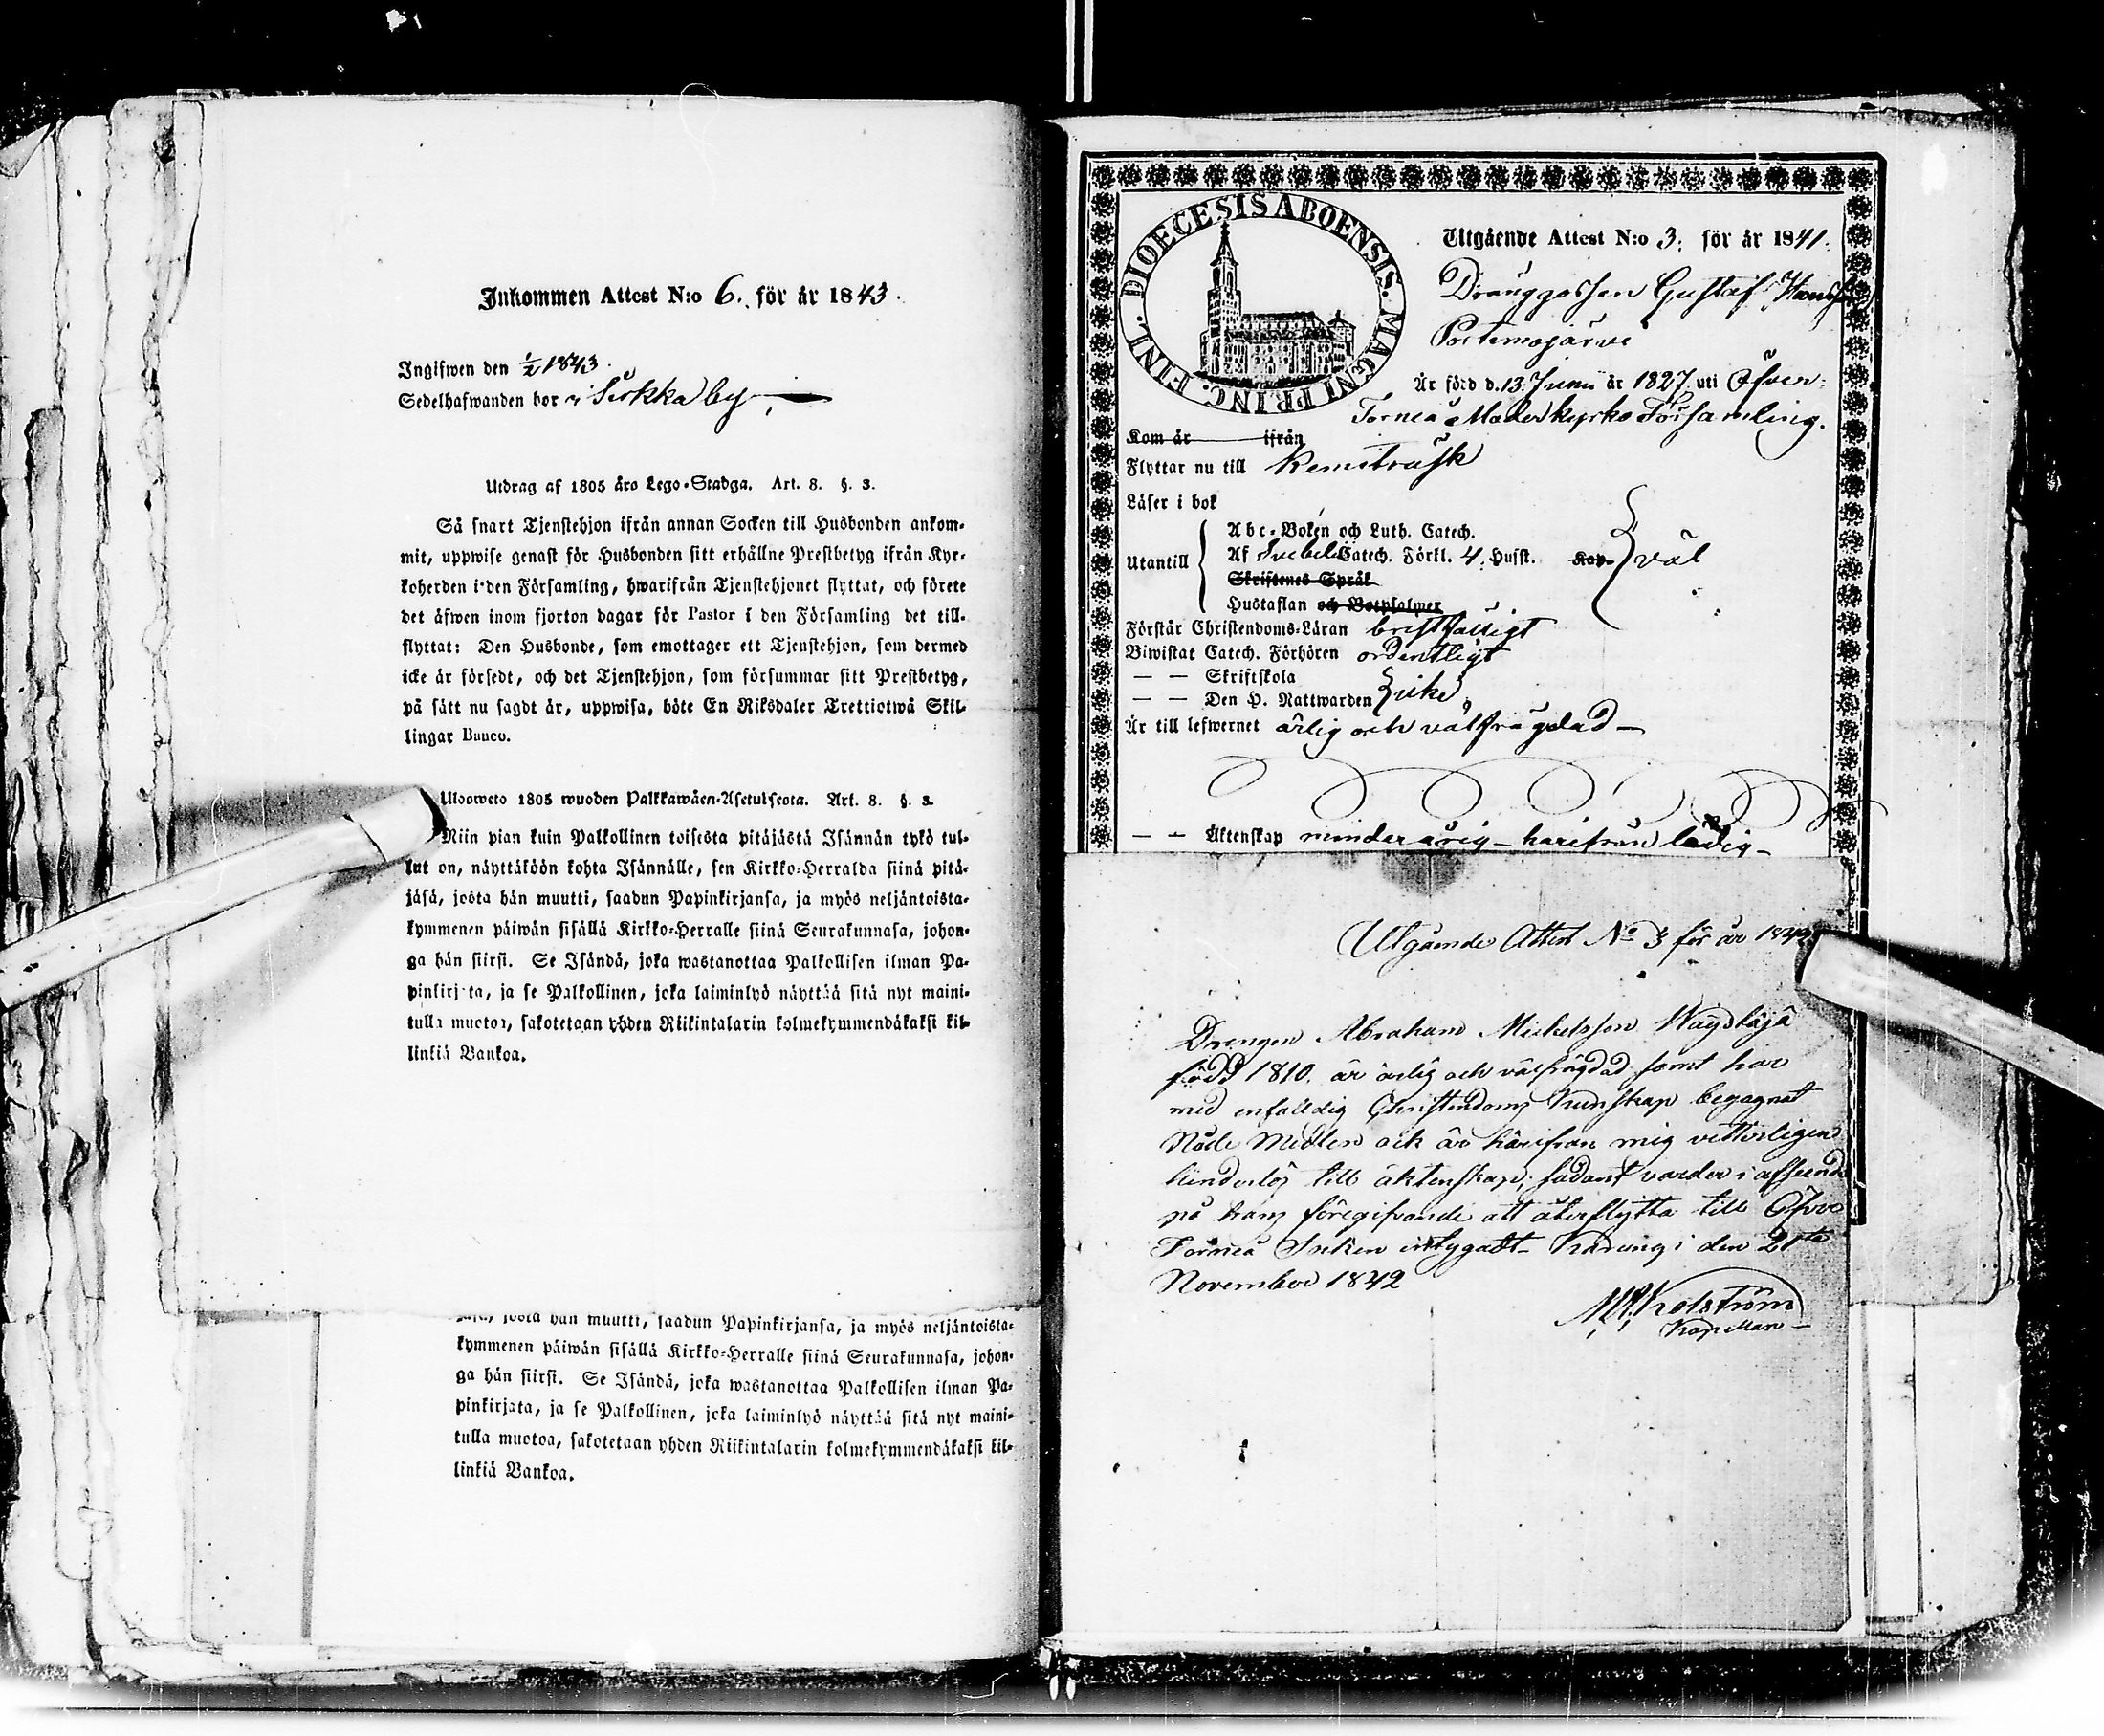 Inkommen Attest N:o 6. för år 1843.
Ingifwen den 1/2 1843.
Sedelhafwanden bor i Sirkka by
Utdrag af 1805 års Lego-Stadga. Art. 8. §. 3.
Så snart Tjenstehjon ifrån annan Socken till Husbonden ankom-
mit, uppwise genast för Husbonden sitt erhållne Prestbetyg ifrån Kyr-
koherden i den Församling, hwarifrån Tjenstehjonet flyttat, och förete
det äfwen inom fjorton dagar för Pastor i den Församling det till-
flyttat: Den Husbonde, som emottager ett Tjenstehjon, som dermed
icke är försedt, och det Tjenstehjon, som försummar sitt Prestbetyg,
på sätt nu sagdt är, uppwisa, böte En Riksdaler Trettiotwå Skil-
lingar Banco.
Ulosweto 1805 wuoden Palkkawäen-Asetuksesta. Art. 8. §. 3.
Niin pian kuin Palkollinen toisesta pitäjästä Isännän tykö tul-
lut on, näyttäköön kohta Isännälle, sen Kirkko-Herralda siinä pitä-
jäsä, josta hän muutti, saadun Papinkirjansa, ja myös neljäntoista-
kymmenen päiwän sisällä Kirkko-Herralle siinä Seurakunnasa, johon-
ga hän siirsi. Se Isändä, joka wastanottaa Palkollisen ilman Pa-
pinkirjata, ja se Palkollinen, joka laiminlyö näyttää sitä nyt maini-
tulla muotoa, sakotetaan yhden Riikintalarin kolmekymmendäkaksi kil-
linkiä Bankoa.
josta hän muutti, saadun Papinkirjansa, ja myös neljäntoista-
kymmenen päiwän sisällä Kirkko-Herralle siinä Seurakunnasa, johon-
ga hän siirsi. Se Isändä, joka wastanottaa Palkollisen ilman Pa-
pinkirjata, ja se Palkollinen, joka laiminlyö näyttää sitä nyt maini-
tulla muotoa, sakotetaan yhden Riikintalarin kolmekymmendäkaksi kil-
linkiä Bankoa.
DIOECESIS ABOENSIS. MAGNI PRINC. FINL.
Utgående Attest N:o 3. för år 1841.
Dränggossen Gustaf Hansson
Portimojärvi
Är född d. 13 Junii år 1827 uti Öfver-
Torneå Moderkyrko Församling.
Kom år ifrån
Flyttar nu till Kemiträsk
Läser i bok
Abc-Boken och Luth. Catech.
Utantill Af Svebelii Catech. Förkl. 4. Husst. Kap. väl
Skriftenes Språk
Hustaflan och Botpsalmer
Förstår Christendoms-Läran bristfälligt
Biwistat Catech. Förhören ordentligt
— — Skriftskola
— — Den H. Nattwarden icke
Är till lefwernet ärlig och välfrägdad —
— — Äktenskap minderårig — härifrån ledig —
Utgående Attest No 3 för år 1842
Drengen Abraham Mickelsson Wäyläjä
född 1810. är ärlig och välfrägdad samt har
med enfalldig Christendoms Kunskap begagnat
Nåde Medlen och är härifrån mig vetterligen
hinderlös till äktenskap; sådant varder i afseende
på hans föregifvande att återflytta till Öfver
Torneå Socken intygadt — Karungi den 21sta
November 1842
Kapellan —